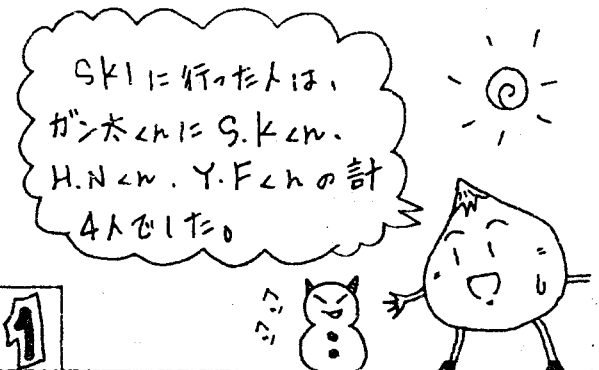 SKIに行った人は、
ガン太くんにS.Kくん、
H.Nくん、Y.Fくんの計
4人でした。
ヘン
ヘン
1